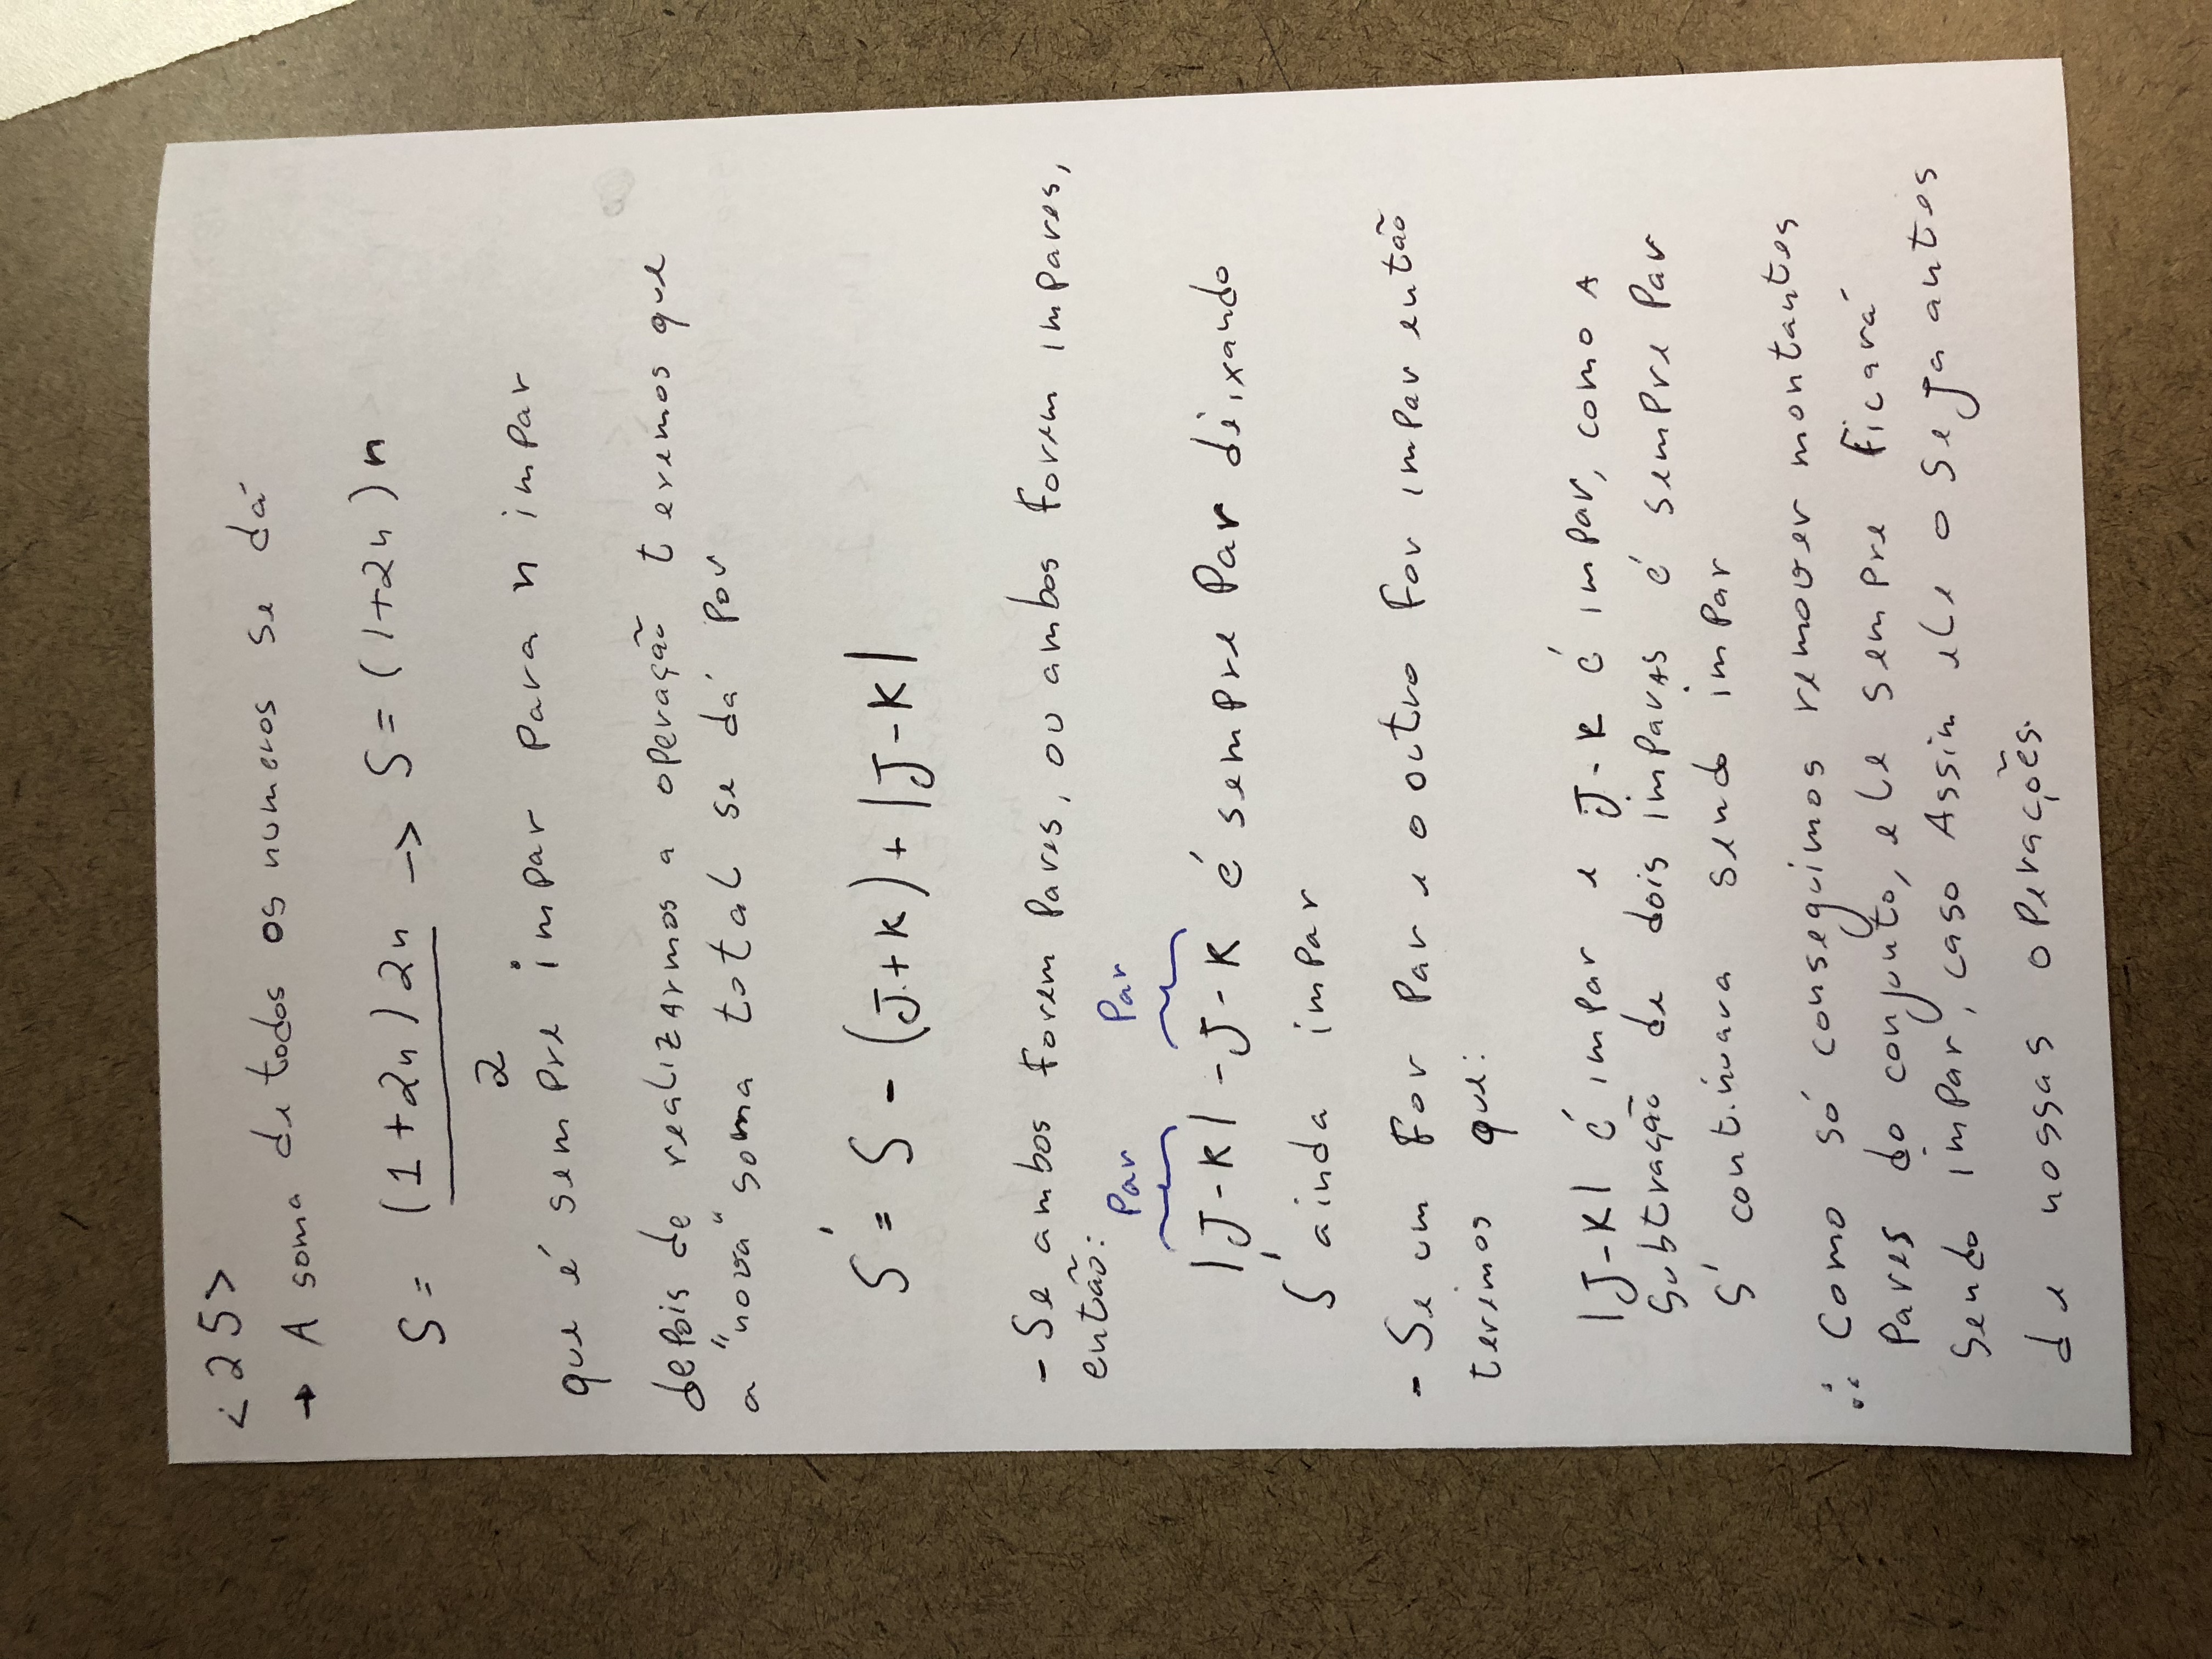 <25>
→ A soma de todos os numeros se dá
S = (1+2n)2n / 2 -> S = (1+2n)n
que é sempre impar para n impar
depois de realizarmos a operação teremos que
a "nova" soma total se dá por
S' = S - (J+K) + |J-K|
- Se ambos forem pares, ou ambos forem impares,
então:
Par Par
|J-K| -J-K é sempre Par deixando
S' ainda impar
- Se um for Par e o outro for impar então
teremos que:
|J-K| é impar e J-K é impar, como a
subtração de dois impares é sempre Par
S' continuara sendo impar
∴ Como só conseguimos remover montantes
pares do conjunto, ele sempre ficará
sendo impar, caso Assim ele o seja antes
de nossas operações.